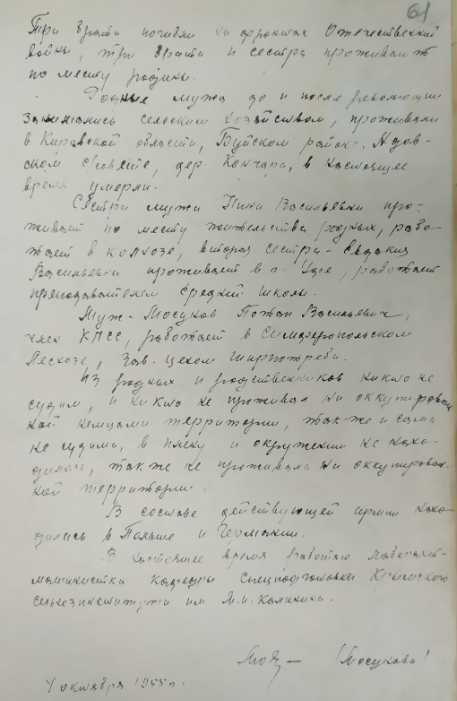 61
Три брата погибли на фронтах Отечественной
войны, три брата и сестра проживают
по месту родины.
Родные мужа до и после революции
занимались сельским хозяйством, проживали
в Кировской области, Буйском районе,
ском с/совете, дер. Кончара, в настоящее
время умерли.
Сестра мужа Нина Васильевна про-
живает по месту жительства родных, рабо-
тает в колхозе, вторая сестра - Евдокия
Васильевна проживает в г. Уфе, работает
преподавателем средней школы.
Муж - Мосунов Васильевич,
член КПСС, работает в Симферопольском
Лесхозе, Зав. цехом ширпотреба.
Из родных и родственников никто не
судим, и никто не проживал на оккупирован-
ной немцами территории, также и сама
не судима, в плену и окружении не нахо-
дилась, также не проживала на оккупирован-
ной территории.
В составе действующей армии нахо-
дились в Польше и Германии.
В настоящее время работаю
машинистка кафедры спецподготовки Крымского
сельхозинститута им М.И. Калинина.
(Мосунова)
октября 1955 г.